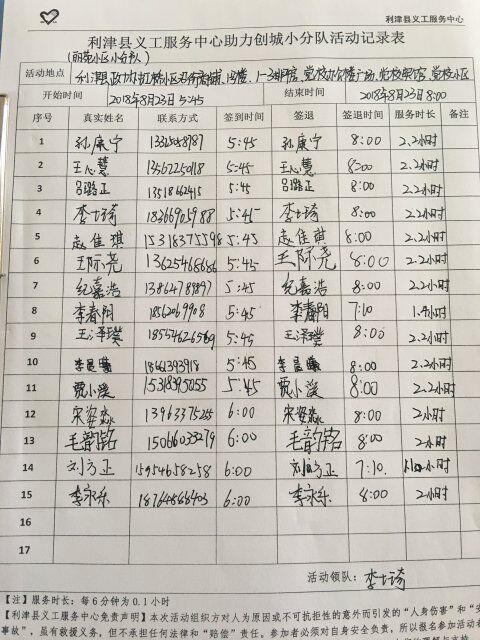 利津县义工服务中心
利津县义工服务中心助力创城小分队活动记录表
活动地点
开始时间 2018年8月23日 5:45 结束时间 2018年8月23日 8:00
序号 真实姓名 联系方式 签到时间 签退 签退时间 服务时长 备注
1 孙康宁 5:45 孙康宁 8:00 2.2小时
2 王心慧 13562225018 5:45 王心慧 8:00 2.2小时
3 吕璐正 13518662415 5:45 吕璐正 8:00 2.2小时
4 李士琦 18266905988 5:45 李士琦 8:00 2.2小时
5 赵佳琪 15318375598 5:45 赵佳琪 8:00 2.2小时
6 王际尧 13625466686 5:45 王际尧 8:00 2.2小时
7 纪嘉浩 13864789897 5:45 纪嘉浩 8:00 2.2小时
8 李春阳 5:45 李春阳 7:10 1.4小时
9 王泽璞 5:45 王泽璞 8:00 2.2小时
10 18661393918 5:45 8:00 2.2小时
11 贾小溪 15318395055 5:45 贾小溪 8:00 2.2小时
12 宋姿淼 6:00 宋姿淼 8:00 2小时
13 毛韵铭 15066033279 6:00 毛韵铭 8:00 2小时
14 刘方正 15954658258 6:00 刘方正 7:10 小时
15 李永乐 6:00 李永乐 8:00 2小时
16
17
活动领队： 李士琦
【注】服务时长：每6分钟为0.1小时
【利津县义工服务中心免责声明】本次活动组织方对人为原因或不可抗拒性的意外而引发的“人身伤害”和“安
事故”，虽有救援义务，但不承担任何法律和“赔偿”责任。参加者必须对自身安全负责，所以报名参加活动者